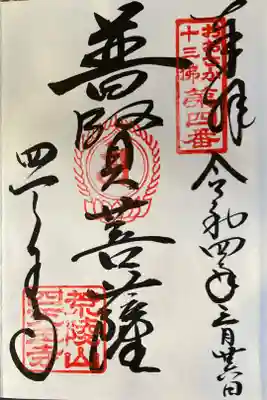 奉拝
おおさか
十三佛第四番
令和四年三月廿六日
普賢菩薩
荒陵山
四天王寺
四天王寺